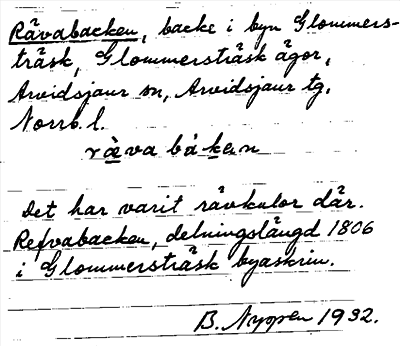 Rävabacken, backe i byn Glommers-
träsk, Glommersträsk ägor,
Arvidsjaur sn, Arvidsjaur tg,
Norrb. l.
räva bàkan
Det har varit rävkulor där.
Refvabacken, delningslängd 1806
i Glommersträsk byaskrin.
B. Nyppen 1932.